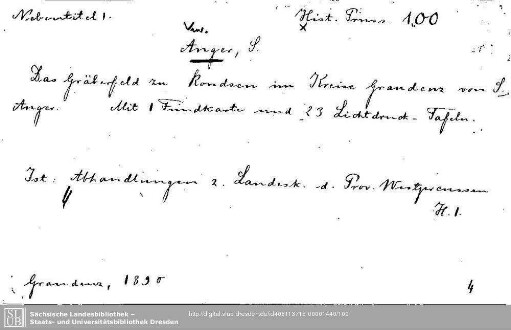 Nebentitel 1. Hist. Pruss 1,00
Verf.
Anger, S.
Das Gräberfeld zu Rondsen im Kreise Graudenz von S.
Anger. Mit 1 Fundkarte und 23 Lichtdruck-Tafeln.
Ist: Abhandlungen z. Landesk. d. Prov. Westpreussen
H. 1.
Graudenz, 1890
4
SLUB Sächsische Landesbibliothek –
Staats- und Universitätsbibliothek Dresden